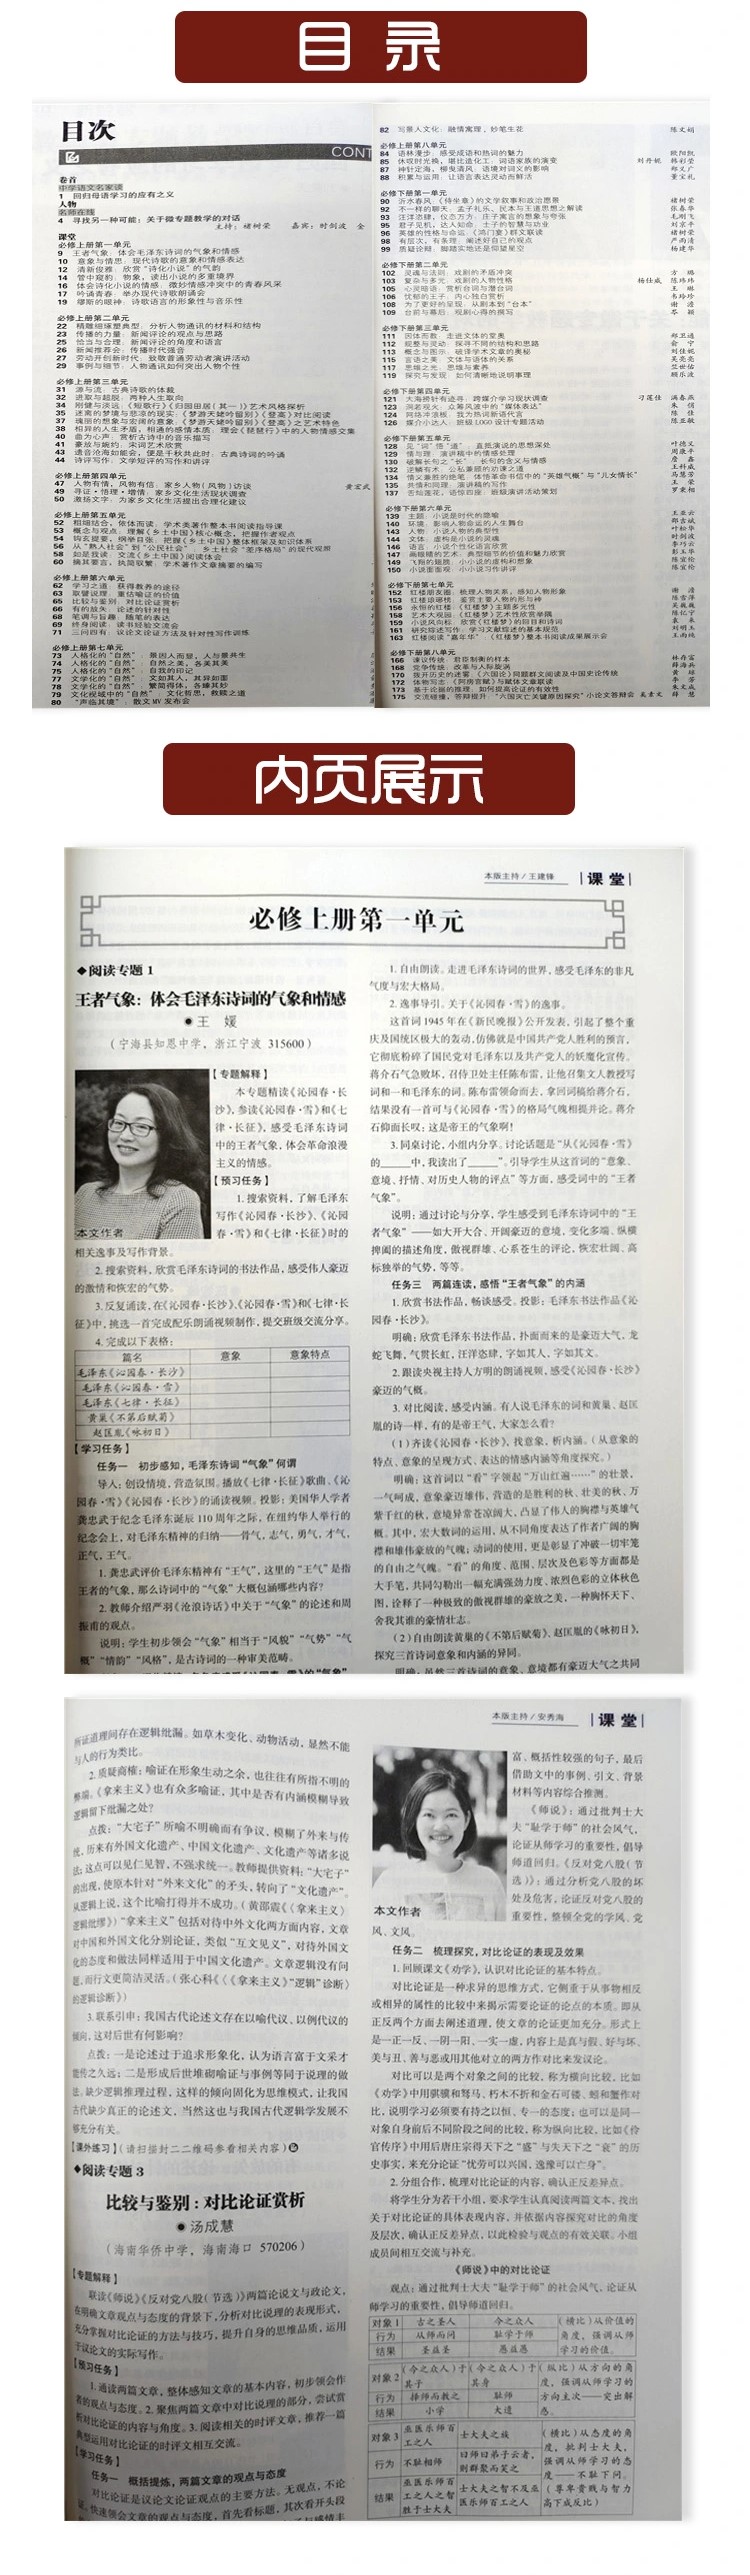 目录
目次
CONT
卷首
中学语文名家谈
1 回归母语学习的应有之义
人物
名师在线
4 寻找另一种可能：关于微专题教学的对话
主持：褚树荣 嘉宾：时剑波 金
课堂
必修上册第一单元
9 王者气象：体会毛泽东诗词的气象和情感
10 意象与情思：现代诗歌的意象和情感表达
12 清新俊雅：欣赏“诗化小说”的气韵
14 管中窥豹：物象，读出小说的多重境界
16 体会诗化小说的情感：微妙情感冲突中的青春风采
17 吟诵青春：举办现代诗歌朗诵会
19 缪斯的眼神：诗歌语言的形象性与音乐性
必修上册第二单元
22 精雕细琢塑典型：分析人物通讯的材料和结构
23 传播的力量：新闻评论的观点与思路
25 恰当与合理：新闻评论的角度和语言
26 新闻推荐会：传播时代强音
27 劳动开创新时代：致敬普通劳动者演讲活动
29 事例与细节：人物通讯如何突出人物个性
必修上册第三单元
31 源与流：古典诗歌的体裁
32 进取与超脱：两种人生取向
34 刚健与淡远：《短歌行》《归园田居（其一）》艺术风格探析
35 迷离的梦境与悲凉的现实：《梦游天姥吟留别》《登高》对比阅读
37 瑰丽的想象与宏阔的意象：《梦游天姥吟留别》《登高》之艺术特色
38 相异的人生矛盾，相通的感情本质：理会《琵琶行》中的人物情感交集
40 曲为心声：赏析古诗中的音乐描写
41 豪放与婉约：宋词艺术欣赏
43 遗音沧海如能会，便是千秋共此时：古典诗词的吟诵
44 诗评写作：文学短评的写作和讲评
必修上册第四单元
47 人物有情，风物有信：家乡人物（风物）访谈
49 寻证·悟理·增情：家乡文化生活现状调查
50 激扬文字：为家乡文化生活提出合理化建议
必修上册第五单元
52 粗细结合，依体而读：学术类著作整本书阅读指导课
53 概念与观点：理解《乡土中国》核心概念，把握作者观点
54 钩玄提要，纲举目张：把握《乡土中国》整体框架及知识体系
56 从“熟人社会”到“公民社会”：乡土社会“差序格局”的现代观照
58 如是我读：交流《乡土中国》阅读体会
60 摘其要言，执简驭繁：学术著作文章摘要的编写
必修上册第六单元
62 学习之道：获得教养的途径
63 取譬说理：重估喻证的价值
65 比较与鉴别：对比论证赏析
66 有的放矢：论述的针对性
68 笔调与旨趣：随笔的表达
69 终身阅读：读书经验交流会
71 三问四有：议论文论证方法及针对性写作训练
必修上册第七单元
73 人格化的“自然”：景因人而显，人与景共生
74 人格化的“自然”：自然之美，各美其美
75 人格化的“自然”：自我的印记
77 文学化的“自然”：文如其人，其异如面
78 文学化的“自然”：繁简得体，各臻其妙
79 文化视域中的“自然”：文化哲思，救赎之道
80 “声临其境”：散文MV发布会
82 写景人文化：融情寓理，妙笔生花 陈文娟
必修上册第八单元
84 语林漫步：感受成语和热词的魅力 欧阳凯
85 休叹时光换，堪比造化工：词语家族的演变 刘丹妮 韩彩荣
87 神针定海，柳曳清风：语境对词义的影响 郑义广
88 积累与运用：让语言表达灵动而鲜活 董宝礼
必修下册第一单元
90 沂水春风：《侍坐章》的文学叙事和政治愿景 褚树荣
92 不一样的聊天：孟子礼乐、民本与王道思想之解读 张春华
93 汪洋恣肆，仪态万方：庄子寓言的想象与夸张 毛刚飞
95 君子见机，达人知命：士子的智慧与功业 刘京平
96 英雄的性格与命运：《鸿门宴》群文联读 褚树荣
98 有层次，有条理：阐述好自己的观点 严雨清
99 质疑辩难：脚踏实地还是仰望星空 杨建华
必修下册第二单元
102 灵魂与法则：戏剧的矛盾冲突 方璐
103 复杂与多元：戏剧的人物性格 杨仕威 陈玮玮
105 心灵暗语：赏析台词与潜台词 王琳
106 忧郁的王子：内心独白赏析 韦玲珍
108 为了更好的呈现：从剧本到“台本” 谢澹
109 台前与幕后：观剧心得的撰写
必修下册第三单元
111 因体而教：走进文体的堂奥 郑卫通
112 规整与灵动：探寻不同的结构和思路 俞宁
113 概念与图示：破译学术文章的奥秘 刘佳妮
115 言语之美：文体与语体的关系 吴亮亮
117 思维之光：思维与素养 竺世佑
119 探究与发现：如何清晰地说明事理 顾乐波
必修下册第四单元
121 大海捞针有迹寻：跨媒介学习现状调查 刁莲佳 满春燕
123 洞若观火：众筹风波中的“媒体表达” 朱俏
124 网络冲浪板：我为热词新语代言 陈佳
126 媒介小达人：班级LOGO设计专题活动 陈亚敏
必修下册第五单元
128 见“词”悟“道”：直抵演说的思想深处 叶德义
129 情与理：演讲稿中的情感处理 周康平
130 破解长句之“长”：长句的含义与情感 詹鑫
132 逆鳞有术：公私兼顾的劝谏之道 王科威
134 情义兼胜的绝笔：体悟革命书信中的“英雄气概”与“儿女情长” 马慧芳
135 共情和同理：演讲稿的写作 王荣
137 舌灿莲花，语惊四座：班级演讲活动策划 罗秉相
必修下册第六单元
139 主题：小说是时代的隐喻 王亚云
140 环境：影响人物命运的人生舞台 郑吉斌
143 人物：小说人物的典型性 叶松华
144 文体：虚构是小说的灵魂 时剑波
146 语言：小说个性化语言欣赏 李巧云
147 画眉睛的艺术：典型细节的价值和魅力欣赏 彭玉华
149 飞翔的翅膀：小小说的虚构和想象 陈宜伦
150 小说面面观：小小说习作讲评 陈宜伦
必修下册第七单元
152 红楼朋友圈：梳理人物关系，感知人物形象 谢澹
153 红楼琅琊榜：鉴赏主要人物的形与神 陈雪萍
156 永恒的红楼：《红楼梦》主题多元性 吴巍巍
158 艺术大观园：《红楼梦》艺术性欣赏举隅 陈亿宁
159 小说风向标：欣赏《红楼梦》的回目和诗词 袁来
161 研究综述写作：学习文献综述的基本规范 刘明玉
163 红楼阅读“嘉年华”：《红楼梦》整本书阅读成果展示会 王雨纯
必修下册第八单元
166 谏议传统：君臣制衡的样本 林存富
168 竞争传统：改革与人际旋涡 薛海兵
170 拨开历史的迷雾：《六国论》同题群文阅读及中国史论传统 黄琼
172 体物写志：《阿房宫赋》与赋体文章联读 李芳
173 基于论据的推理：如何提高论证的有效性 朱文成
175 交流碰撞，答辩提升：“六国灭亡关键原因探究”小论文答辩会 吴素文 薛慧
内页展示
本版主持/王建锋 课堂
必修上册第一单元
◆阅读专题1
王者气象：体会毛泽东诗词的气象和情感
●王 媛
（宁海县知恩中学，浙江宁波 315600）
本文作者
【专题解释】
本专题精读《沁园春·长
沙》，参读《沁园春·雪》和《七
律·长征》，感受毛泽东诗词
中的王者气象，体会革命浪漫
主义的情感。
【预习任务】
1. 搜索资料，了解毛泽东
写作《沁园春·长沙》、《沁园
春·雪》和《七律·长征》时的
相关逸事及写作背景。
2. 搜索资料，欣赏毛泽东诗词的书法作品，感受伟人豪迈
的激情和恢宏的气势。
3. 反复诵读，在《沁园春·长沙》《沁园春·雪》和《七律·长
征》中，挑选一首完成配乐朗诵视频制作，提交班级交流分享。
4. 完成以下表格：
篇名 意象 意象特点
毛泽东《沁园春·长沙》
毛泽东《沁园春·雪》
毛泽东《七律·长征》
黄巢《不第后赋菊》
赵匡胤《咏初日》
【学习任务】
任务一 初步感知，毛泽东诗词“气象”何谓
导入：创设情境，营造氛围。播放《七律·长征》歌曲、《沁
园春·雪》《沁园春·长沙》的诵读视频。投影：美国华人学者
龚忠武于纪念毛泽东诞辰110周年之际，在纽约华人举行的
纪念会上，对毛泽东精神的归纳——骨气，志气，勇气，才气，
正气，王气。
1. 龚忠武评价毛泽东精神有“王气”，这里的“王气”是指
王者的气象，那么诗词中的“气象”大概包涵哪些内容？
2. 教师介绍严羽《沧浪诗话》中关于“气象”的论述和周
振甫的观点。
说明：学生初步领会“气象”相当于“风貌”“气势”“气
概”“情韵”“风格”，是古诗词的一种审美范畴。
1. 自由朗读。走进毛泽东诗词的世界，感受毛泽东的非凡
气度与宏大格局。
2. 逸事导引。关于《沁园春·雪》的逸事。
这首词1945年在《新民晚报》公开发表，引起了整个重
庆及国统区极大的轰动，仿佛就是中国共产党人胜利的预言，
它彻底粉碎了国民党对毛泽东以及共产党人的妖魔化宣传。
蒋介石气急败坏，召侍卫处主任陈布雷，让他召集文人教授写
词和一和毛泽东的词。陈布雷领命而去，拿回词稿给蒋介石，
结果没有一首可与《沁园春·雪》的格局气魄相提并论。蒋介
石仰面长叹：这是帝王的气象啊！
3. 同桌讨论，小组内分享。讨论话题是“从《沁园春·雪》
的＿＿＿中，我读出了＿＿＿”。引导学生从这首词的“意象、
意境、抒情、对历史人物的评点”等方面，感受词中的“王者
气象”。
说明：通过讨论与分享，学生感受到毛泽东诗词中的“王
者气象”——如大开大合、开阔豪迈的意境，变化多端、纵横
捭阖的描述角度，傲视群雄、心系苍生的评论，恢宏壮阔、高
标独举的气势，等等。
任务三 两篇连读，感悟“王者气象”的内涵
1. 欣赏书法作品，畅谈感受。投影：毛泽东书法作品《沁
园春·长沙》。
明确：欣赏毛泽东书法作品，扑面而来的是豪迈大气，龙
蛇飞舞，气贯长虹，汪洋恣肆，字如其人，字如其文。
2. 跟读央视主持人方明的朗诵视频，感受《沁园春·长沙》
豪迈的气概。
3. 对比阅读，感受内涵。有人说毛泽东的词和黄巢、赵匡
胤的诗一样，有的是帝王气，大家怎么看？
（1）齐读《沁园春·长沙》，找意象，析内涵。（从意象的
特点、意象的呈现方式、表达的情感内涵等角度探究。）
明确：这首词以“看”字领起“万山红遍……”的壮景，
一气呵成，意象豪迈雄伟，营造的是胜利的秋、壮美的秋、万
紫千红的秋，意境异常苍凉阔大，凸显了伟人的胸襟与英雄气
概。其中，宏大数词的运用，从不同角度表达了作者广阔的胸
襟和雄伟豪放的气魄；动词的使用，更是彰显了冲破一切牢笼
的自由之气魄。“看”的角度、范围、层次及色彩等方面都是
大手笔，共同勾勒出一幅充满强劲力度、浓烈色彩的立体秋色
图，诠释了一种极致的傲视群雄的豪放之美，一种胸怀天下、
舍我其谁的豪情壮志。
（2）自由朗读黄巢的《不第后赋菊》、赵匡胤的《咏初日》，
探究三首诗词意象和内涵的异同。
明确：虽然三首诗词的意象、意境都有豪迈大气之共同
本版主持/安秀海 课堂
所证道理间存在逻辑纰漏。如草木变化、动物活动，显然不能
与人的行为类比。
2. 质疑商榷：喻证在形象生动之余，也往往有所指不明的
弊端。《拿来主义》也有众多喻证，其中是否有内涵模糊导致
逻辑留下纰漏之处？
点拨：“大宅子”所喻不明确而有争议，模糊了外来与传
统，历来有外国文化遗产、中国文化遗产、文化遗产等诸多说
法；这点可以见仁见智，不强求统一。教师提供资料：“大宅子”
的出现，使原本针对“外来文化”的矛头，转向了“文化遗产”。
从逻辑上说，这个比喻打得并不成功。（黄邵震《〈拿来主义〉
逻辑纰缪》）“拿来主义”包括对待中外文化两方面内容，文章
对中国和外国文化分别论证，类似“互文见义”，对待外国文
化的态度和做法同样适用于中国文化遗产。文章逻辑没有问
题，而行文更简洁灵活。（张心科《〈〈拿来主义〉“逻辑”诊断〉
的逻辑诊断》）
3. 联系引申：我国古代论述文存在以喻代议、以例代议的
倾向，这对后世有何影响？
点拨：一是论述过于追求形象化，认为语言富于文采才
能传之久远；二是形成后世堆砌喻证与事例等同于说理的做
法。缺少逻辑推理过程，这样的倾向固化为思维模式，让我国
古代缺少真正的论述文，当然这也与我国古代逻辑学发展不
够充分有关。
【课外练习】（请扫描封二二维码参看相关内容）
◆阅读专题3
比较与鉴别：对比论证赏析
●汤成慧
（海南华侨中学，海南海口 570206）
【专题解释】
联读《师说》《反对党八股（节选）》两篇论说文与政论文，
在明确文章观点与态度的背景下，分析对比说理的表现形式，
充分掌握对比论证的方法与技巧，提升自身的思维品质，运用
于议论文的实际写作。
【预习任务】
1. 通读两篇文章，整体感知文章的基本内容，初步领会作
者的观点与态度。2. 聚焦两篇文章中对比说理的部分，尝试赏
析对比论证的内容与角度。3. 阅读相关的时评文章，推荐一篇
典型运用对比论证的时评文相互交流。
【学习任务】
任务一 概括提炼，两篇文章的观点与态度
对比论证是议论文论证观点的主要方法。无观点，不论
证。快速领会文章的观点与态度，首先看标题，其次看开头段
本文作者
富、概括性较强的句子，最后
借助文中的事例、引文、背景
材料等内容综合推测。
《师说》：通过批判士大
夫“耻学于师”的社会风气，
论证从师学习的重要性，倡导
师道回归。《反对党八股（节
选）》：通过分析党八股的坏
处及危害，论证反对党八股的
重要性，整顿全党的学风、党
风、文风。
任务二 梳理探究，对比论证的表现及效果
1. 回顾课文《劝学》，认识对比论证的基本特点。
对比论证是一种求异的思维方式，它侧重于从事物相反
或相异的属性的比较中来揭示需要论证的论点的本质。即从
正反两个方面去阐述道理，使文章的论证更加充分。形式上
是一正一反、一阴一阳、一实一虚，内容上是真与假、好与坏、
美与丑、善与恶或用其他对立的两方作对比来发议论。
对比可以是两个对象之间的比较，称为横向比较，比如
《劝学》中用骐骥和驽马、朽木不折和金石可镂、蚓和蟹作对
比，说明学习必须要有持之以恒、专一的态度；也可以是同一
对象自身前后不同阶段之间的比较，称为纵向比较，比如《伶
官传序》中用后唐庄宗得天下之“盛”与失天下之“衰”的历
史事实，来充分论证“忧劳可以兴国，逸豫可以亡身”。
2. 分组合作，梳理对比论证的内容，确认正反差异点。
将学生分为若干小组，要求学生认真阅读两篇文本，找出
关于对比论证的具体表现内容，并依据内容探究对比的角度
及层次，确认正反差异点，以此检验与观点的有效关联。小组
成员间相互交流与补充。
《师说》中的对比论证
观点：通过批判士大夫“耻学于师”的社会风气，论证从
师学习的重要性，倡导师道回归。
对象1 古之圣人 今之众人 （横比）从价值的角度，强调从师学习的价值。
行为 从师而问 耻学于师
结果 圣益圣 愚益愚
对象2 （今之众人）于其子 （今之众人）于其身 （纵比）从方向的角度，强调从师学习的方向主次——突出解惑。
行为 择师而教之 耻师
结果 小学 大遗
对象3 巫医乐师百工之人 士大夫之族 （横比）从态度的角度，批判士大夫，强调从师学习的态度——不耻下问。（尊卑贵贱与智力高下成反比）
行为 不耻相师 曰师曰弟子云者，则群聚而笑之
结果 巫医乐师百工之人之智胜于士大夫 士大夫之智不及巫医乐师百工之人